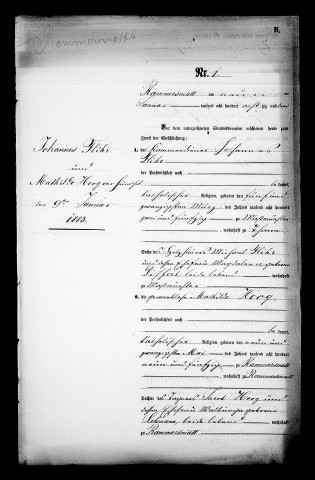 Rammersmatt
B.
Nr. 1
Rammersmatt am neunten
Januar tausend acht hundert achtzig und drei
Vor dem unterzeichneten Standesbeamten erschienen heute zum
Zweck der Eheschließung:
Johannes
und
Mathilde Hoog
den 9ten Januar
1883.
1. der Johannes
der Persönlichkeit nach
be kannt,
katholischer Religion, geboren den fünf und
zwanzigsten März des Jahres tausend acht hundert
zwei und fünfzig zu Masmünster
, wohnhaft zu Thann
Sohn des Michael
und dessen Ehefrau Magdalena geborene
beide lebend wohnhaft
zu Masmünster
2. die gewerblose Mathilde Hoog
der Persönlichkeit nach
be kannt,
katholischer Religion, geboren den neun und
zwanzigsten Mai des Jahres tausend acht hundert
neun und fünfzig zu Rammersmatt
, wohnhaft zu Rammersmatt
Tochter des Jacob Hoog und
dessen Ehefrau Walburga geborene
Lehmann, beide lebend wohnhaft
zu Rammersmatt